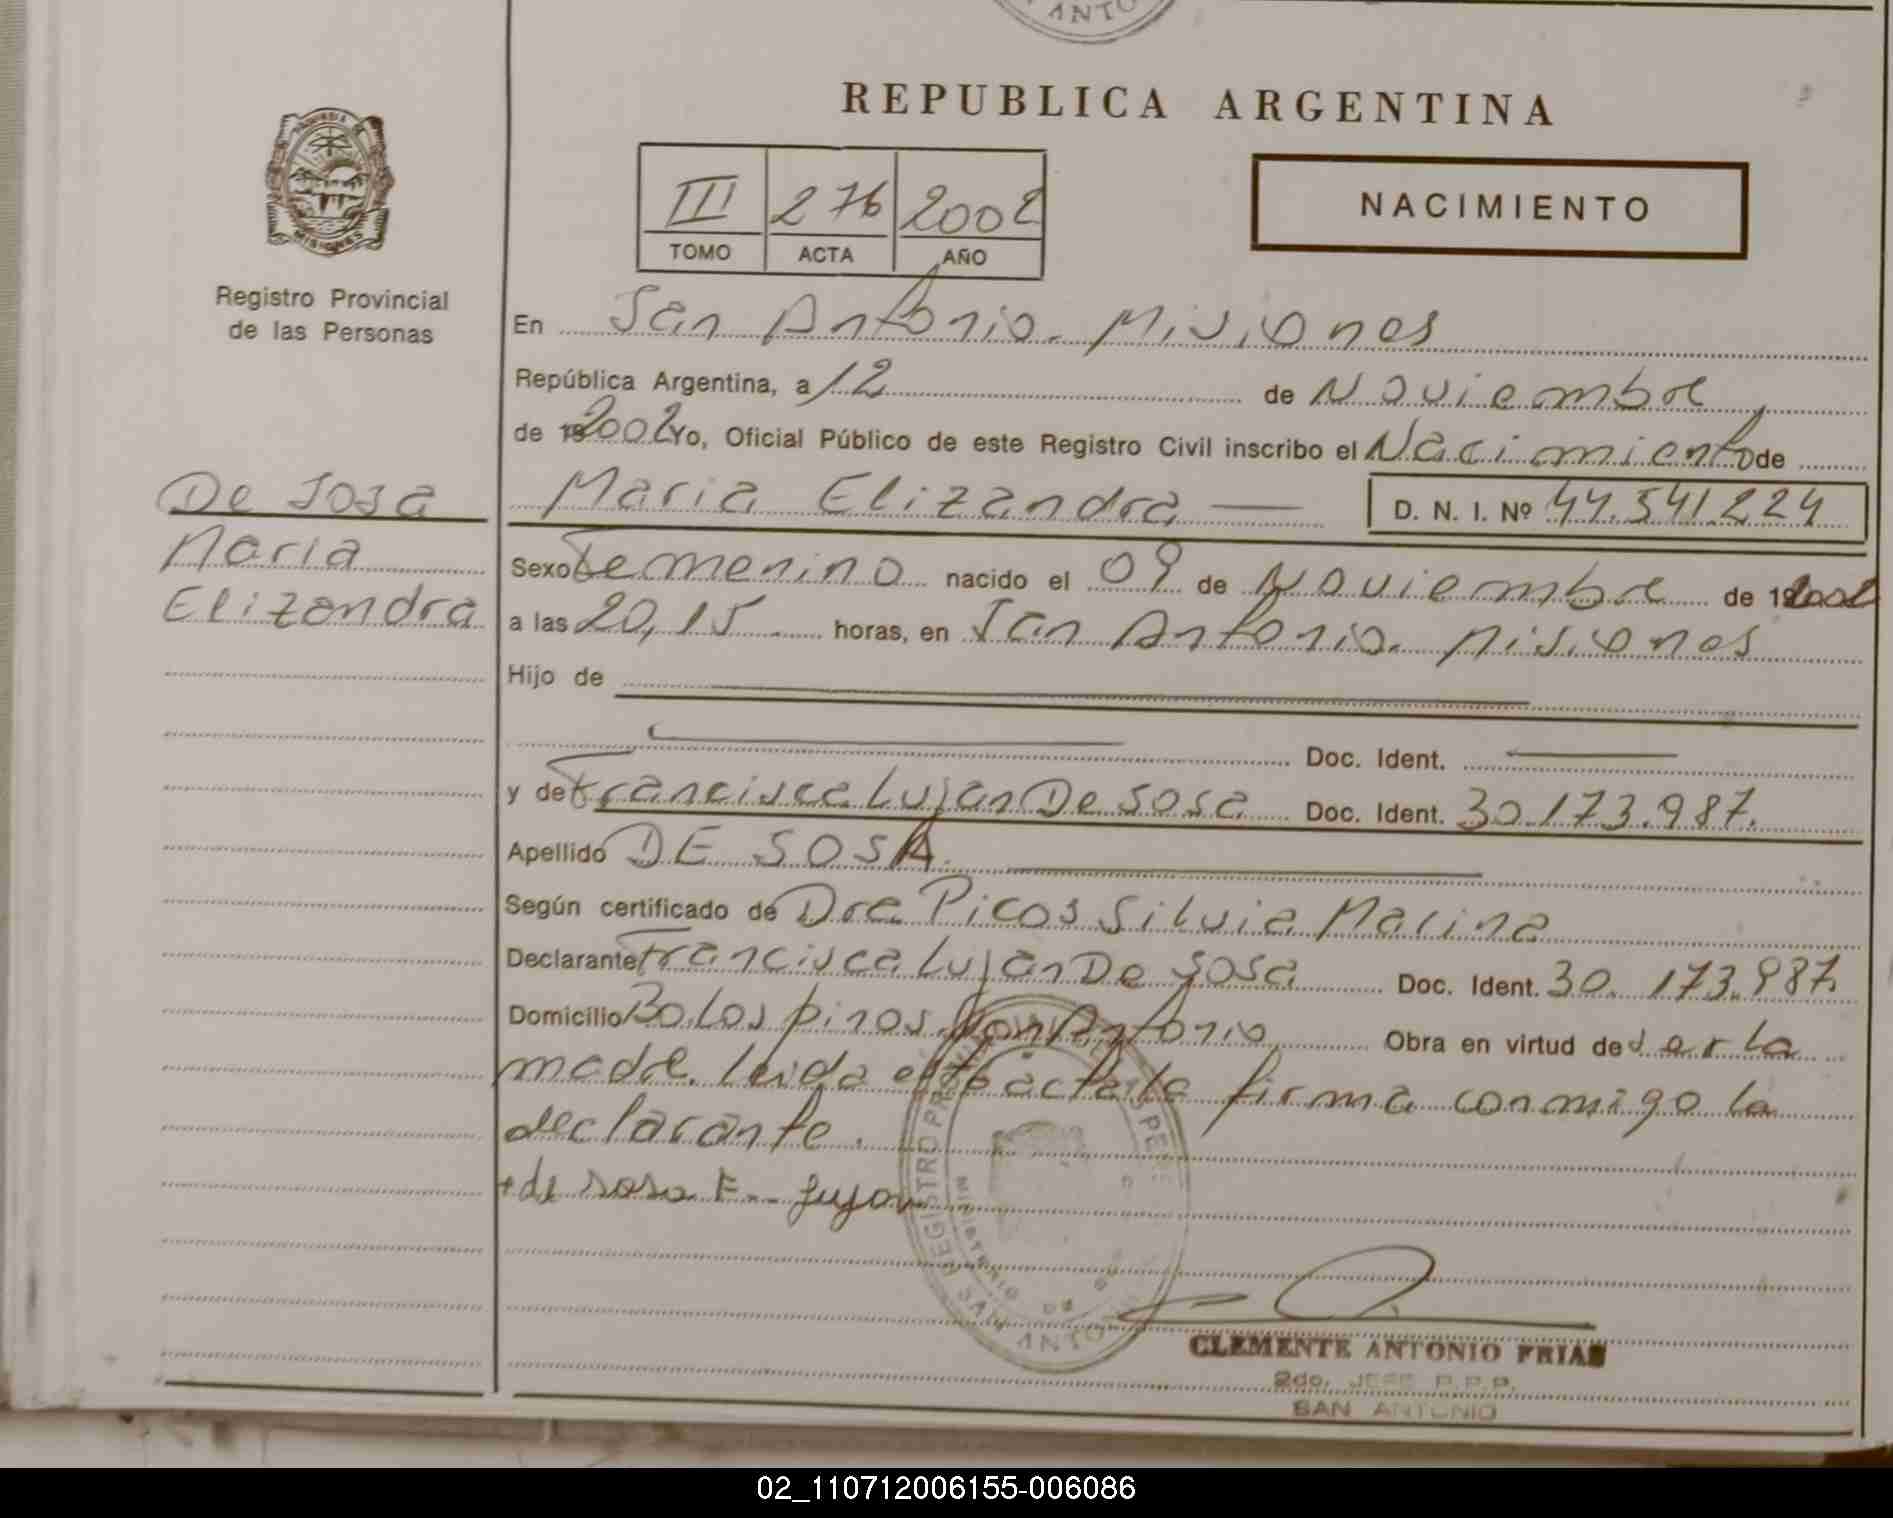 ANTO
REPUBLICA ARGENTINA
PROVINCIA DE
MISIONES
III 276 2002
TOMO ACTA AÑO
NACIMIENTO
Registro Provincial
de las Personas
En San Antonio. Misiones
República Argentina, a 12 de Noviembre
de 2002 Yo, Oficial Público de este Registro Civil inscribo el Nacimiento de
De Sosa
Maria
Elizandra
Maria Elizandra — D. N. I. Nº 44.541.224
Sexo Femenino nacido el 09 de Noviembre de 2002
a las 20,15 horas, en San Antonio. Misiones
Hijo de
Doc. Ident. —
y de Francisca Lujan De Sosa Doc. Ident. 30.173.987.
Apellido DE SOSA.
Según certificado de Dra Picos Silvia Marina
Declarante Francisca Lujan De Sosa Doc. Ident. 30.173.987.
Domicilio Bo. Los pinos. San Antonio Obra en virtud de ser la
madre. leida esta acta la firma conmigo la
declarante.
+de sosa F.. Lujan
REGISTRO PROVINCIAL DE LAS PERS
MINISTERIO DE
SAN ANTONIO
CLEMENTE ANTONIO FRIAS
2do. JEFE R.P.P.
SAN ANTONIO
02_110712006155-006086